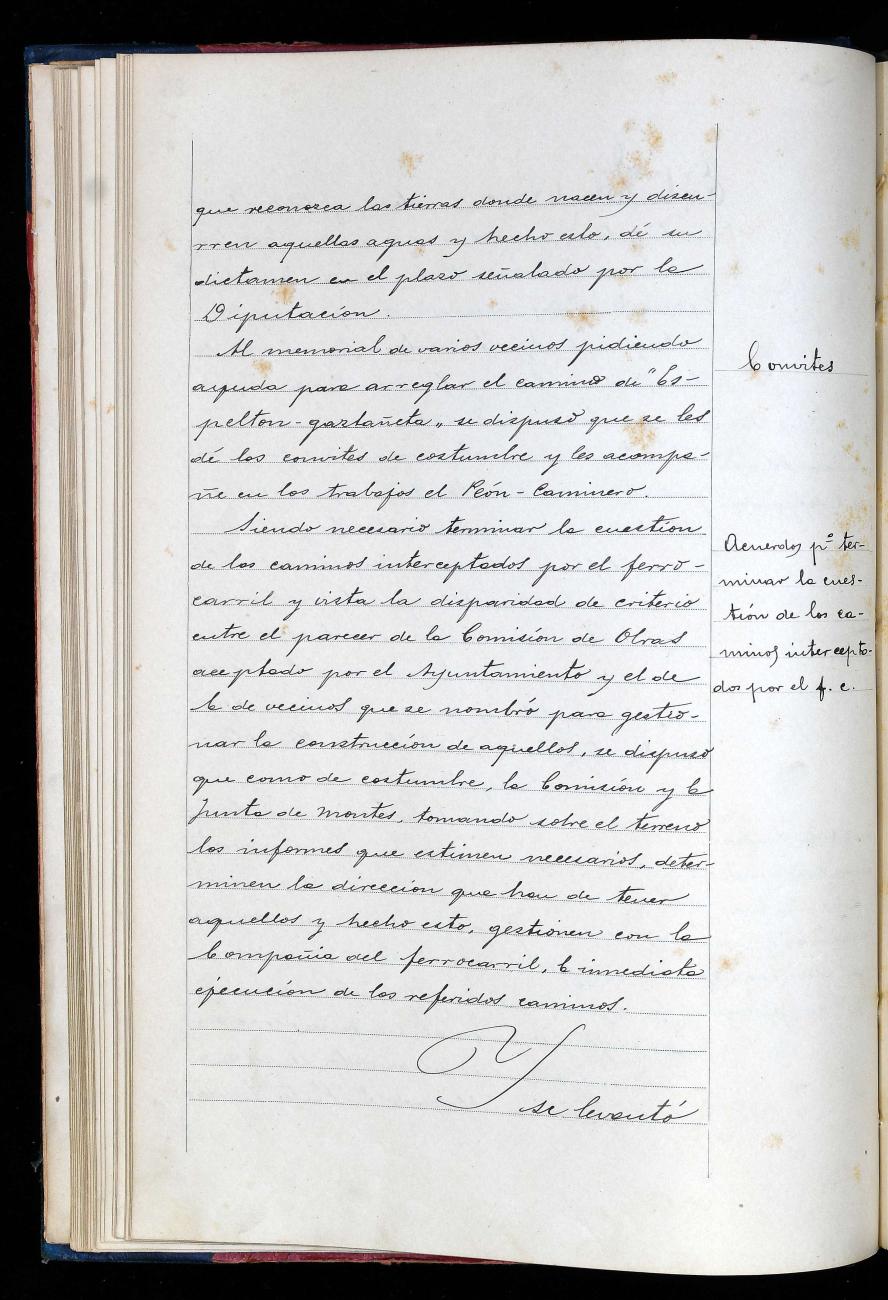 que reconozca las tierras donde nacen y discu-
rren aquellas aguas y hecho esto, dé su
dictamen en el plazo señalado por la
Diputación.
Al memorial de varios vecinos pidiendo
ayuda para arreglar el camino de "Es-
pelton-gaztañeta„ se dispuso que se les
dé los convites de costumbre y les acompa-
ñe en los trabajos el Peón-Caminero.
Siendo necesario terminar la cuestión
de los caminos interceptados por el ferro-
carril y vista la disparidad de criterio
entre el parecer de la Comisión de Obras
aceptado por el Ayuntamiento y el de
la de vecinos que se nombró para gestio-
nar la construcción de aquellos, se dispuso
que como de costumbre, la Comisión y la
Junta de Montes, tomando sobre el terreno
los informes que estimen necesarios, deter-
minen la dirección que han de tener
aquellos y hecho esto, gestionen con la
Compañia del ferrocarril, la inmediata
ejecución de los referidos caminos.
Y
se levantó
Convites
Acuerdos pª ter-
minar la cues-
tión de los ca-
minos intercepta-
dos por el f. c.